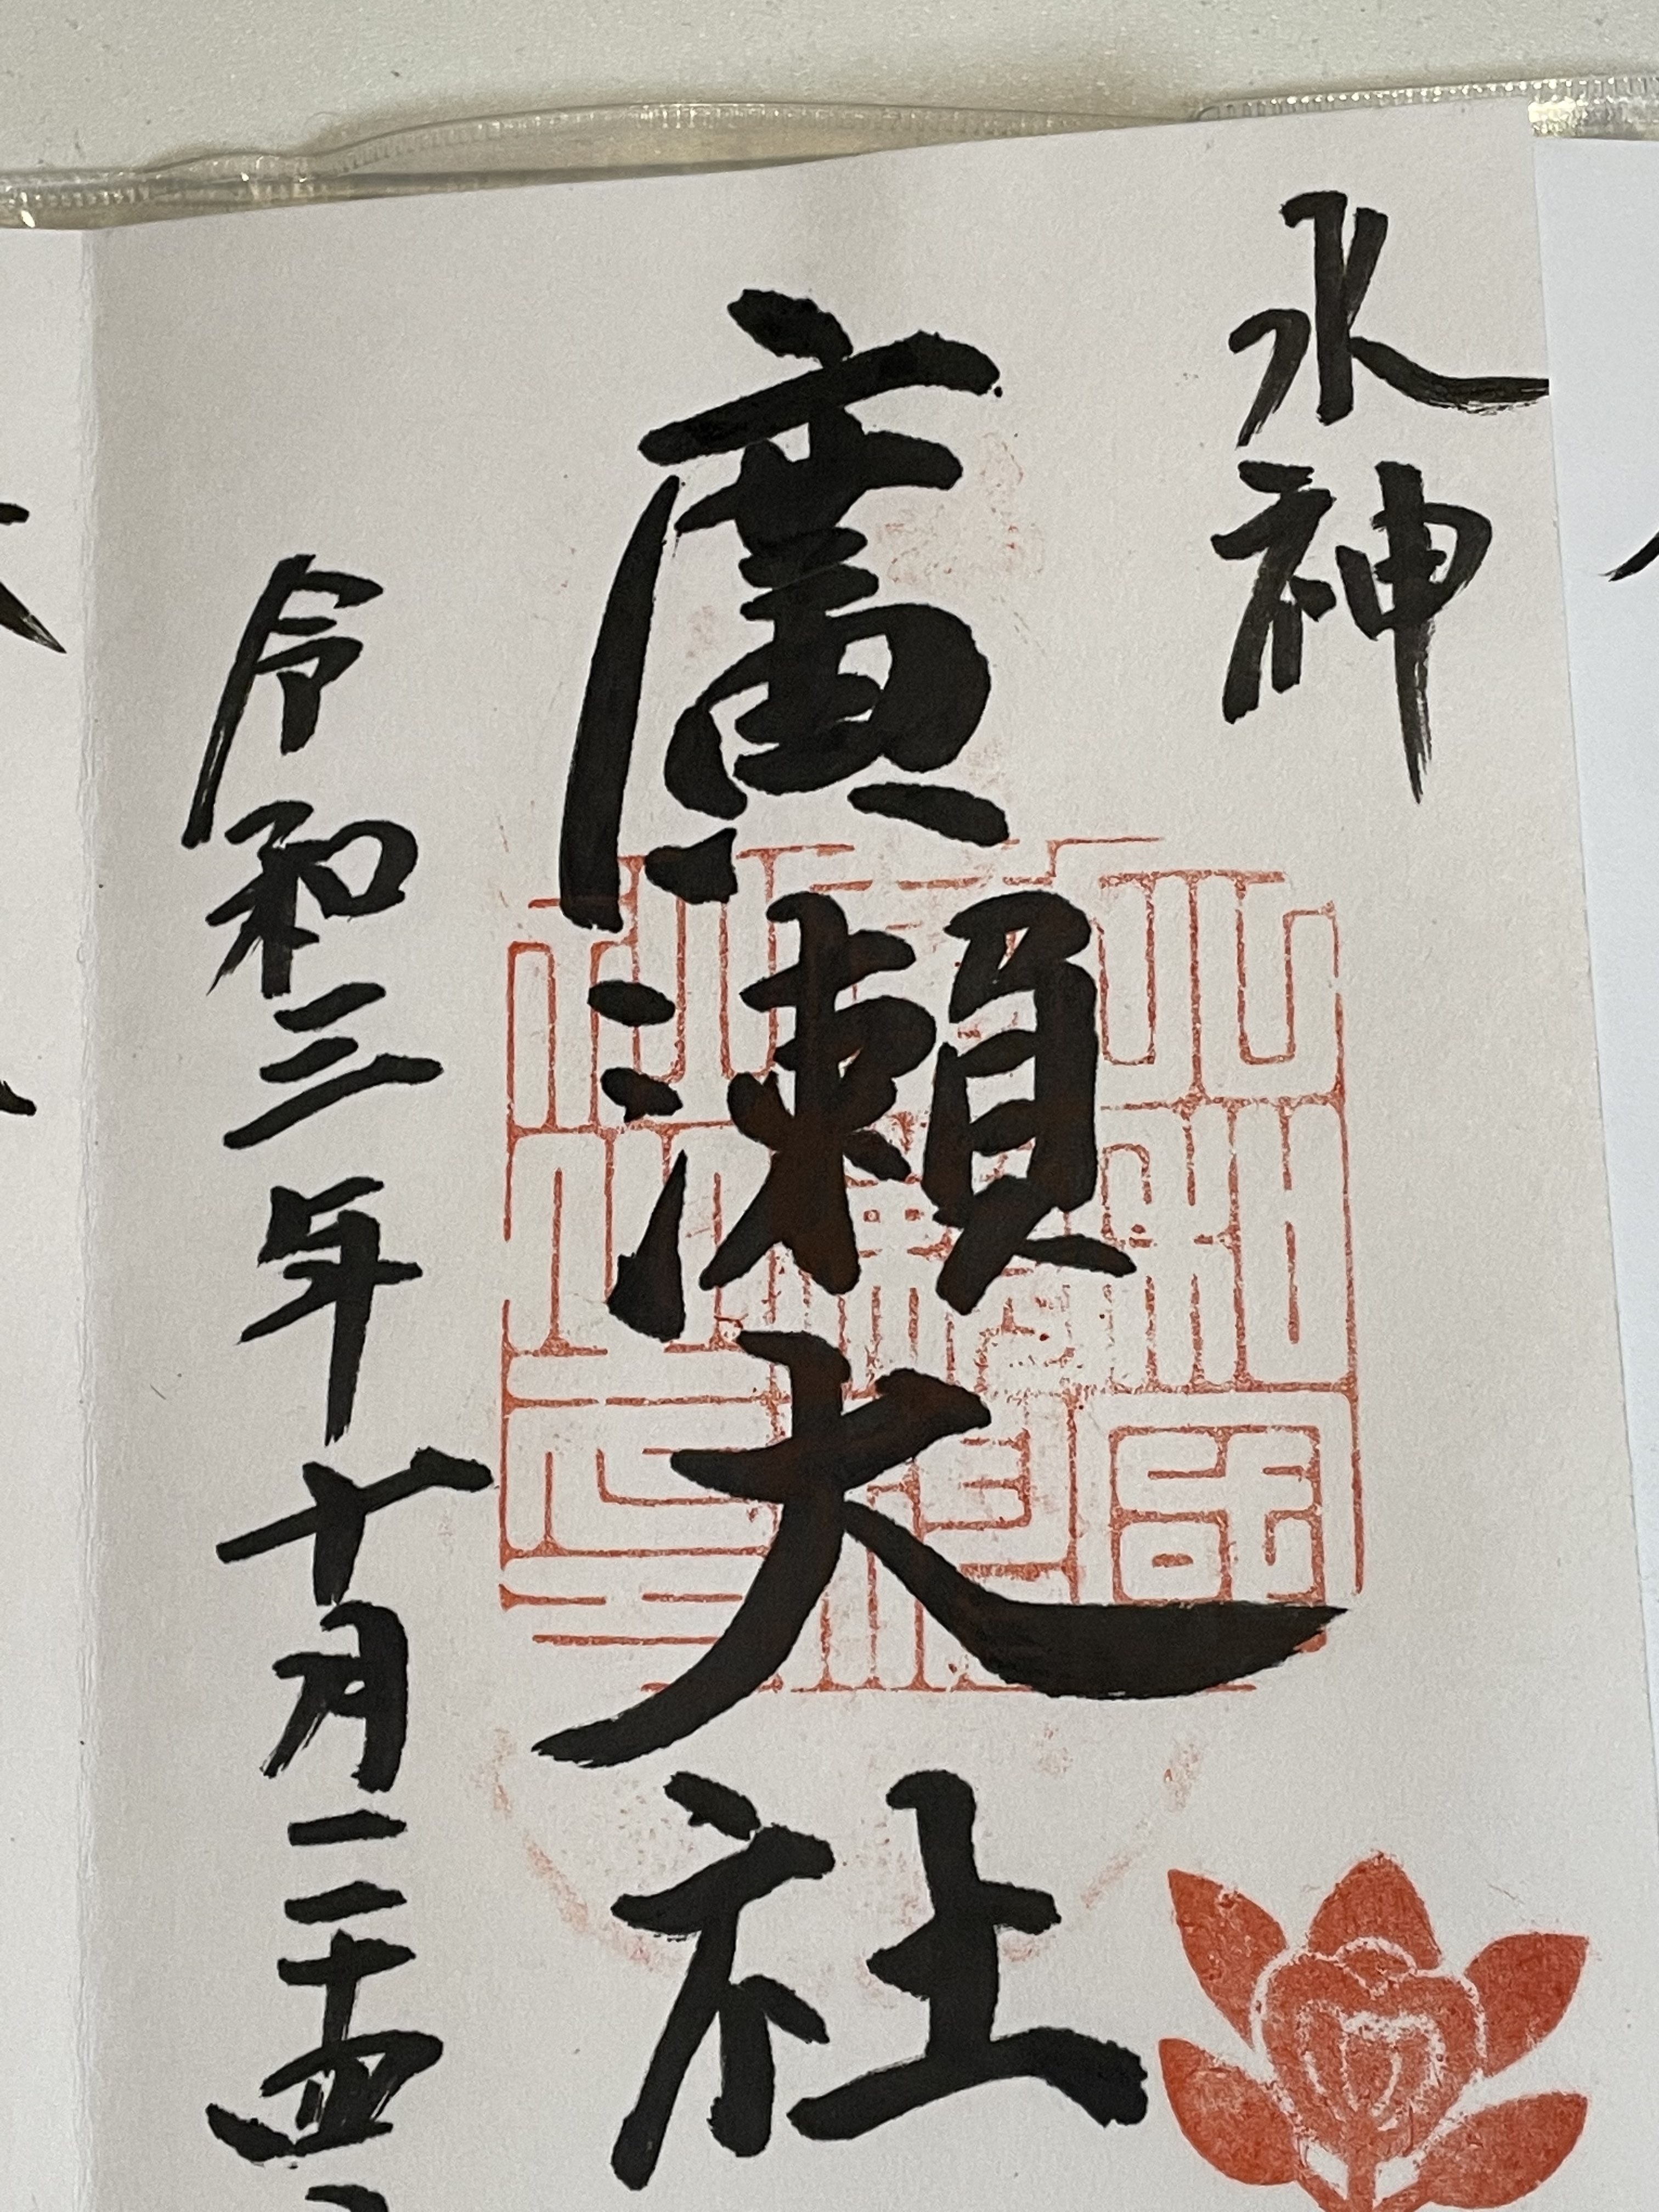 水神
廣瀬大社
令和三年十月二十四